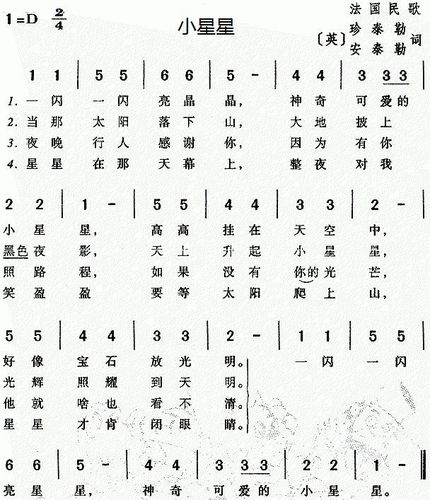 1=D 2/4
小星星
法国民歌
〔英〕珍泰勒
安泰勒 词
1 1 | 5 5 | 6 6 | 5 - | 4 4 | 3 3 3 |
1. 一闪 一闪 亮晶 晶, 神奇 可爱的
2. 当那 太阳 落下 山, 大地 披上
3. 夜晚 行人 感谢 你, 因为 有你
4. 星星 在那 天幕 上, 整夜 对我
2 2 | 1 - | 5 5 | 4 4 | 3 3 | 2 - |
小星 星, 高高 挂在 天空 中,
黑色夜 影, 天上 升起 小星 星,
照路 程, 如果 没有 你的光 芒,
笑盈 盈, 要等 太阳 爬上 山,
5 5 | 4 4 | 3 3 | 2 - | 1 1 | 5 5 |
好像 宝石 放光 明。 一闪 一闪
光辉 照耀 到天 明。
他就 啥也 看不 清。
星星 才肯 闭眼 睛。
6 6 | 5 - | 4 4 | 3 3 3 | 2 2 | 1 - ‖
亮星 星, 神奇 可爱的 小星 星。